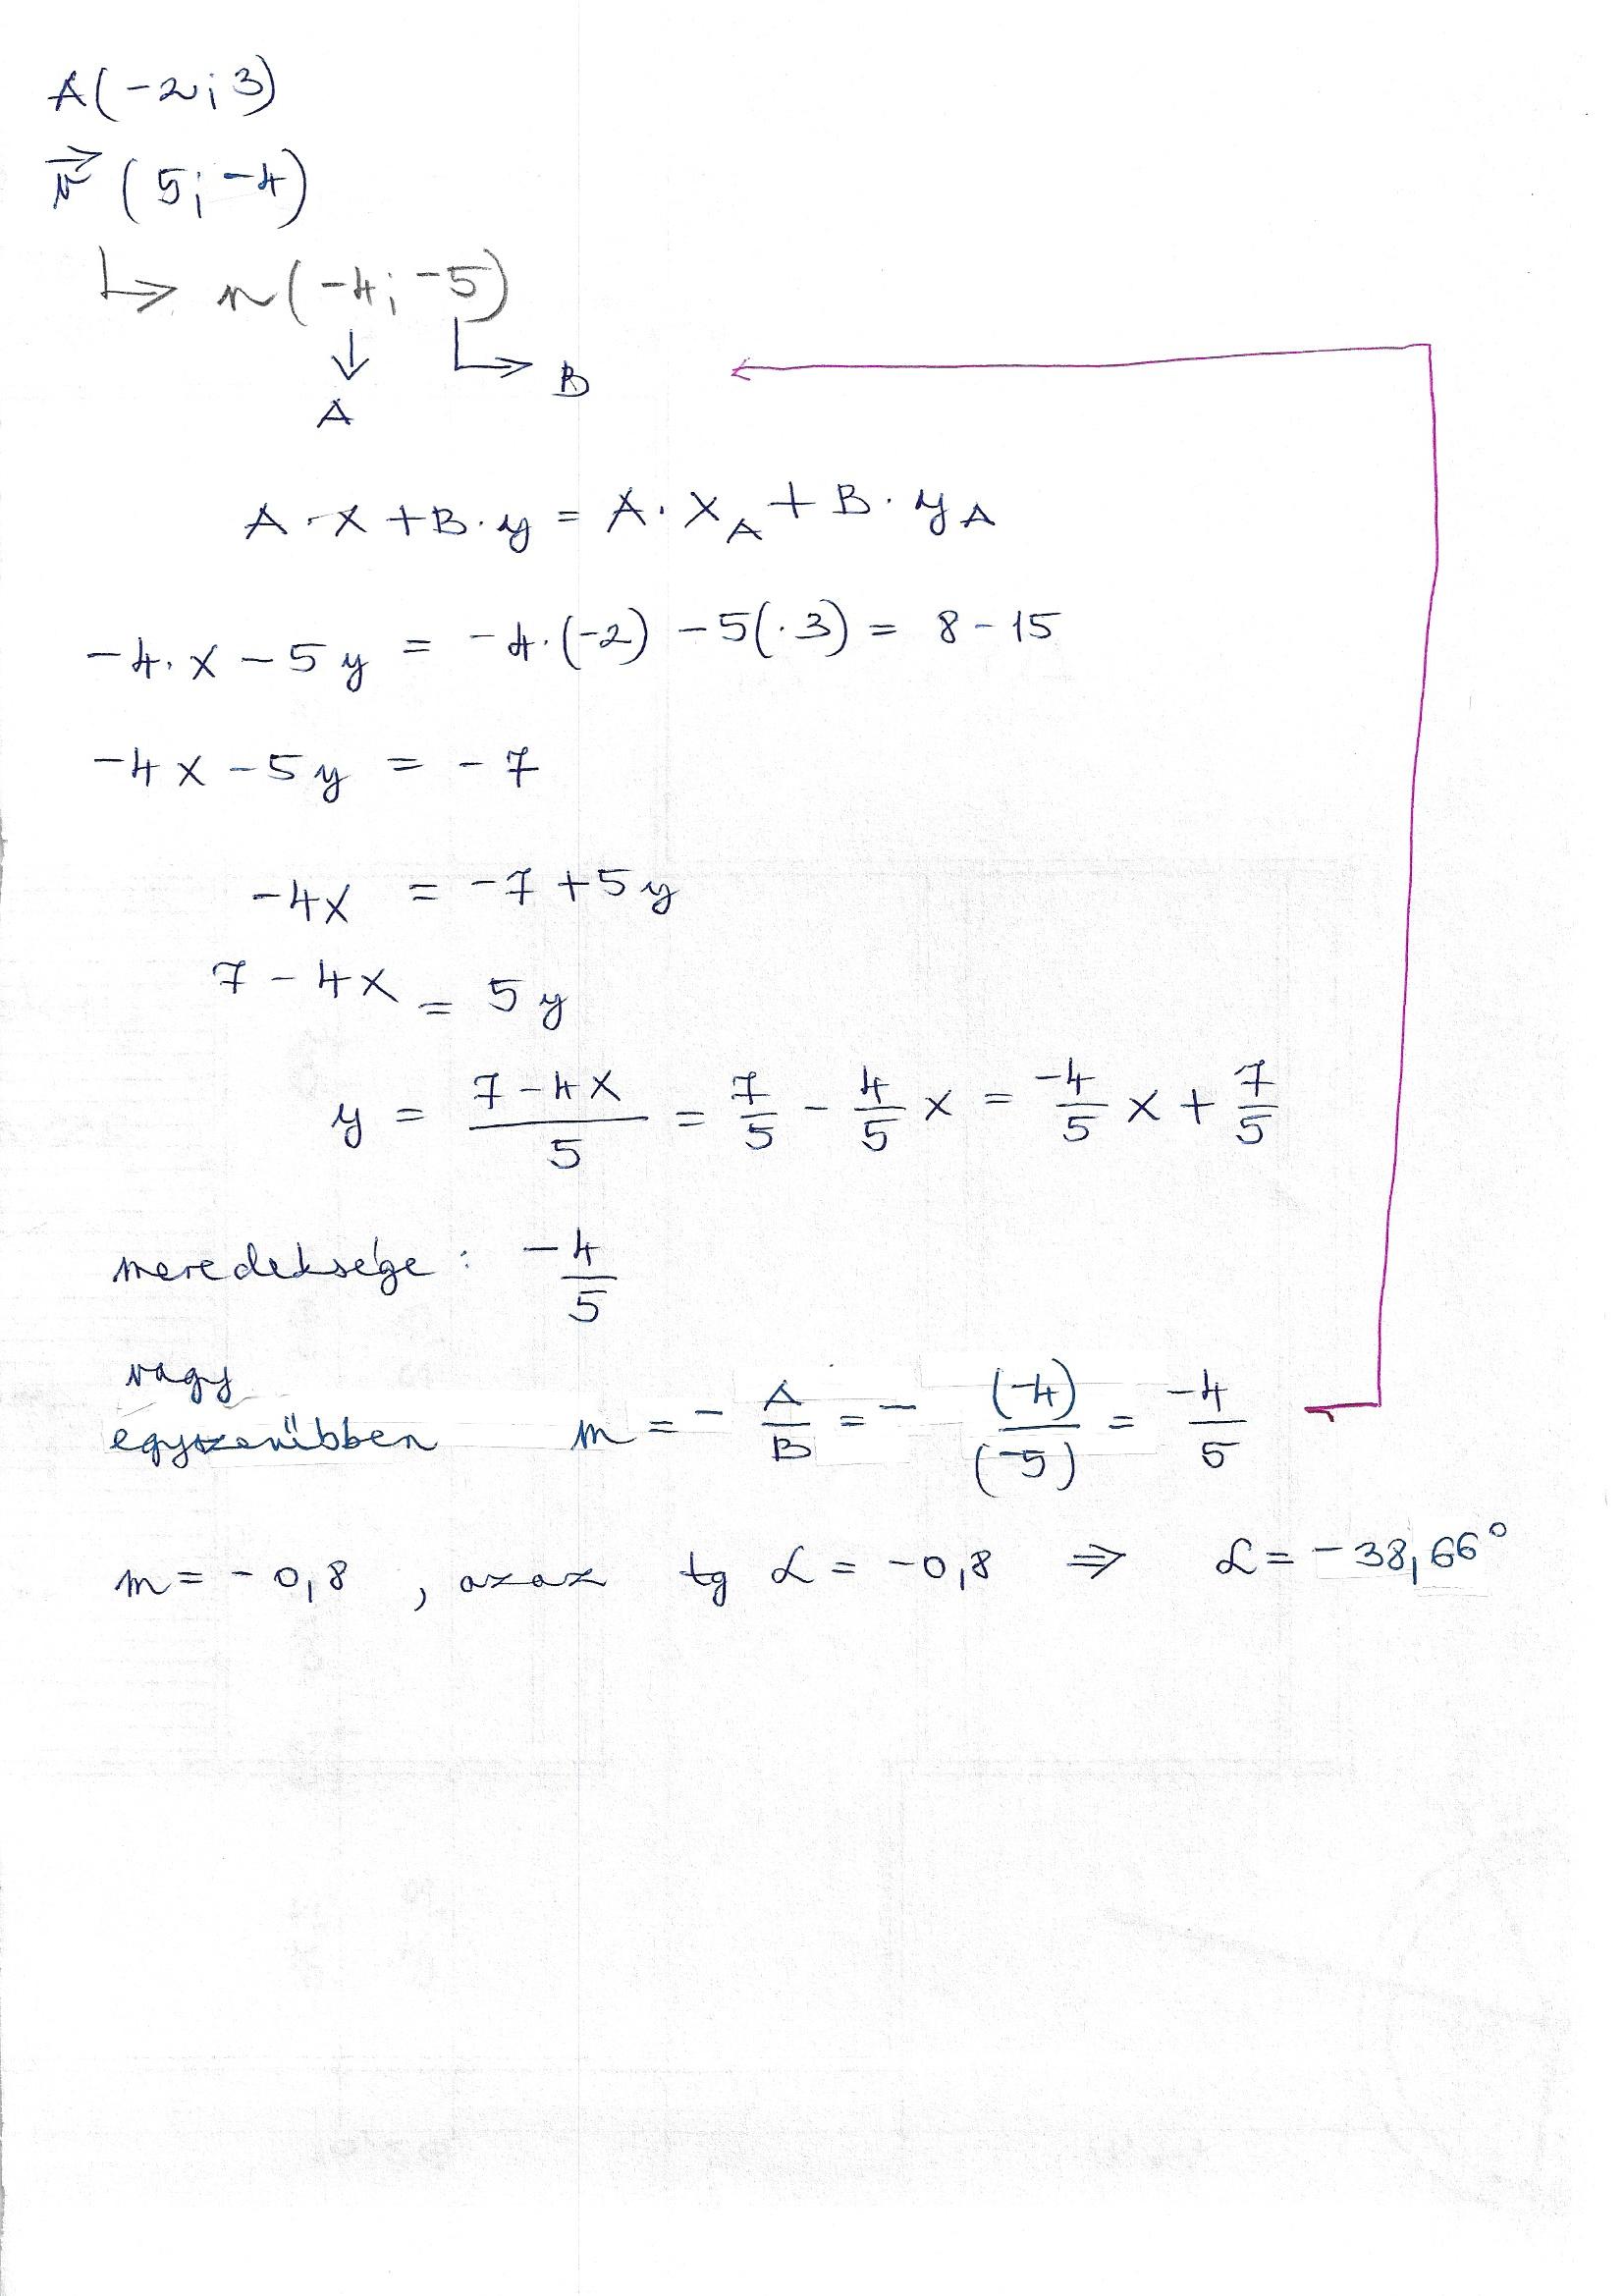 A(-2; 3)
v⃗ (5; -4)
↳ n(-4; -5)
↓ ↳ B
A
A·x + B·y = A·x_A + B·y_A
-4·x - 5y = -4·(-2) - 5(·3) = 8 - 15
-4x - 5y = -7
-4x = -7 + 5y
7 - 4x = 5y
y = (7 - 4x)/5 = 7/5 - 4/5 x = -4/5 x + 7/5
meredeksége: -4/5
vagy
egyszerűbben m = - A/B = - (-4)/(-5) = -4/5
m = -0,8 , azaz tg α = -0,8 ⇒ α = -38,66°